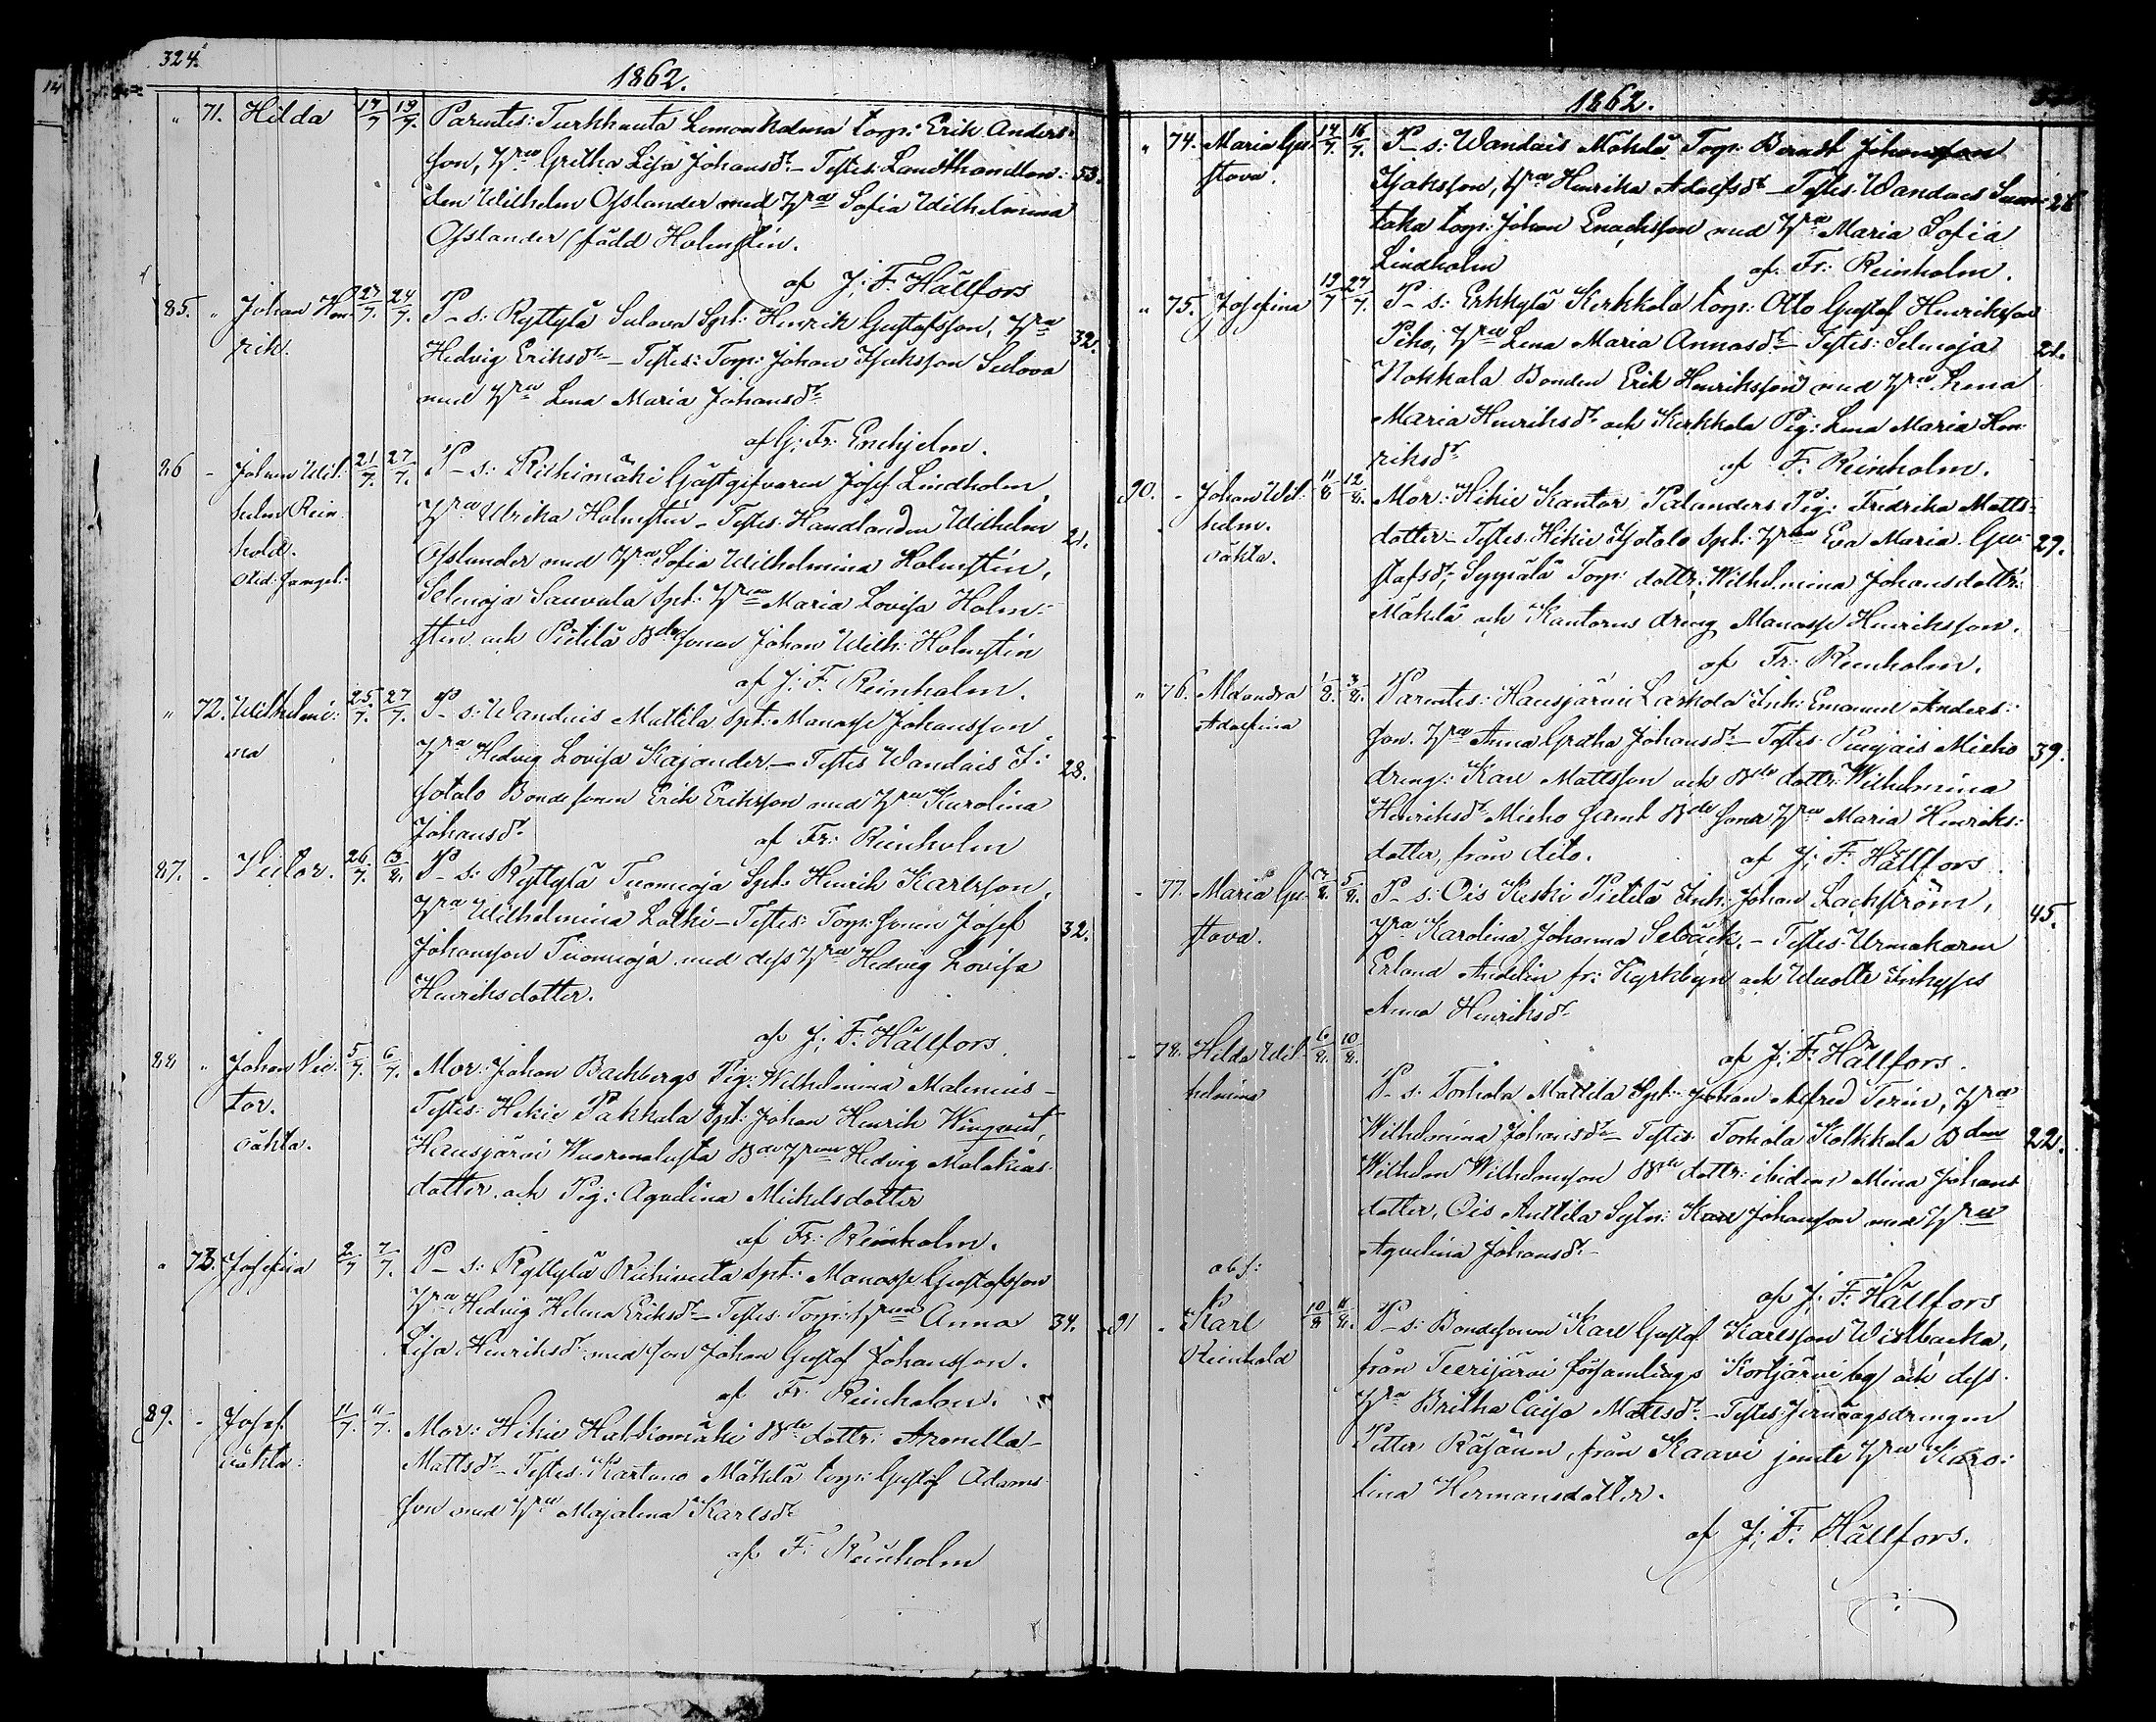 324.
1862.
„ 71. Hilda 17/7 19/7. Parentes: Turkhauta Lemonkolma torp: Erik Anders-
son, Hru Gretha Lisa Johansdr – Testes: Landthandlan- 53.
den Wilhelm Osslander med Hru Sofia Wilhelmina
Osslander (född Holmstén.
af J: F. Hällfors
85. „ Johan Hen- 23/7. 24/7. P–s: Ryttylä Sulova Spt: Henrik Gustafsson, Hru 32.
rik. Hedvig Eriksdr – Testes: Torp: Johan Isaksson Sulova
med Hru Lena Maria Johansdr
af G: Fr: Enehjelm.
86 – Johan Wil- 21/7. 27/7. P–s: Riihimäki Gästgifvaren Josef Lindholm,
helm Rein- Hru Ulrika Holmstén – Testes: Handlanden Wilhelm 21.
hold. Osslander med Hru Sofia Wilhelmina Holmstén,
Selmoja Sauvala Spt: Hru Maria Lovisa Holm-
stén och Pietilä Bdesonen Johan Wilh: Holmstén
af J: F. Reinholm.
„ 72. Wilhelmi- 25/7. 27/7. P–s: Wandais Mattila Spt: Manasse Johansson
na Hru Hedvig Lovisa Kajander. – Testes Wandais I- 28.
sotalo Bondesonen Erik Eriksson med Hru Karolina
Johansdr
af Fr: Reinholm
87. – Victor. 26/7. 3/8. P–s: Ryttylä Tuomioja Spt: Henrik Karlsson,
Hru Wilhelmina Lathi – Testes: Torp: sonen Josef 32.
Johansson Tuomioja med dess Hru Hedvig Lovisa
Henriksdotter.
af J: F. Hällfors.
88 „ Johan Vic- 5/7. 6/7. Mor: Johan Backbergs Pig: Wilhelmina Malenius –
tor. Testes: Hikie Pakkala Spt: Johan Henrik Winqvist,
oäkta. Hausjärvi Wuorenalusta Bde Hrun Hedvig Malakias-
dotter och Pig: Aqvelina Michelsdotter
af Fr: Reinholm.
„ 73. Josefina 2/7 7/7. P–s: Ryttylä Riihiviita Spt: Manasse Gustafsson
Hru Hedvig Helena Eriksdr – Testes Torp: Hrun Anna 34.
Lisa Henriksdr med son Johan Gustaf Johansson.
af Fr. Reinholm.
89. – Josef 11/7. 11/7. Mor: Hikie Hakkomäki Bde dottr: Aronella
oäkta. Mattsdr – Testes: Karhuno Mäkelä torp: Gustaf Adams-
son med Hru Majalena Karlsdr
af F. Reinholm
1862.
„ 74. Maria Gu- 14/7. 16/7. P–s: Wandais Mäkelä Torp: Berndt Johansson
stava. Isaksson, Hru Henrika Adolfsdr – Testes: Wandais Suon- 26
taka torp: Johan Enochsson med Hru Maria Sofia
Lindholm
af. Fr: Reinholm.
„ 75. Josefina 19/7 27/7. P–s: Erkkylä Kirkkola torp: Otto Gustaf Henriksson
Piho, Hru Lena Maria Annasdr – Testes: Selmoja 21.
Nokkala Bonden Erik Henriksson med Hru Lena
Maria Henriksdr och Kirkkola Pig: Lena Maria Hen-
riksdr
af F. Reinholm.
90. – Johan Wil- 11/8 12/8. Mor: Hikie Kantor Palanders Pig: Fredrika Matts-
helm. dotter – Testes: Hikie Isotalo Spt: Hrun Eva Maria Gu- 29.
oäkta. stafsdr, Syyjälä Torp: dottr: Wilhelmina Johansdottr:
Mäkelä och Kantorns dreng Manasse Henriksson.
af Fr: Reinholm.
„ 76. Alexandra 1/8. 3/8. Parentes: Hausjärvi Larkola Inh: Emanuel Anders-
Adolfina son. Hru Anna Gretha Johansdr – Testes: Puujais Mieho 39.
dreng: Karl Mattsson och Bde dottr: Wilhelmina
Henriksdr Mieho samt Bde sones Hru Maria Henriks-
dotter, från dito.
af J: F. Hällfors
– 77. Maria Gu- 3/8. 5/8. P–s: Ois Keski Pietilä Inh: Johan Lagström,
stava. Hru Karolina Johanna Sebäck. – Testes: Urmakaren 45.
Erland Andelin fr: Kyrkbyn och Unolle Inhyses
Anna Henriksdr
af J: F. Hällfors.
– 78. Hilda Wil- 6/8. 10/8. P–s: Torhola Mattila Spt: Johan Alfred Terin, Hru
helmina Wilhelmina Johansdr – Testes: Torhola Kolkkala Bden 22.
Wilhelm Wilhelmsson Bde dottr: ibidem Mina Johans-
dotter, Ois Anttila Sytn: Karl Johansson med Hru
Aqvelina Johansdr –
af J: F. Hällfors
obs:
91 – Karl 10/8 11/8. P–s: Bondesonen Karl Gustaf Karlsson Wistbacka,
Reinhold från Teerijärvi församlings Kortjärvi by och dess
Hru Britha Caisa Mattsdr – Testes: Jernvägsdrengen
Petter Räsänen, från Kaavi jemte Hru Karo-
lina Hermansdotter.
af J: F. Hällfors.